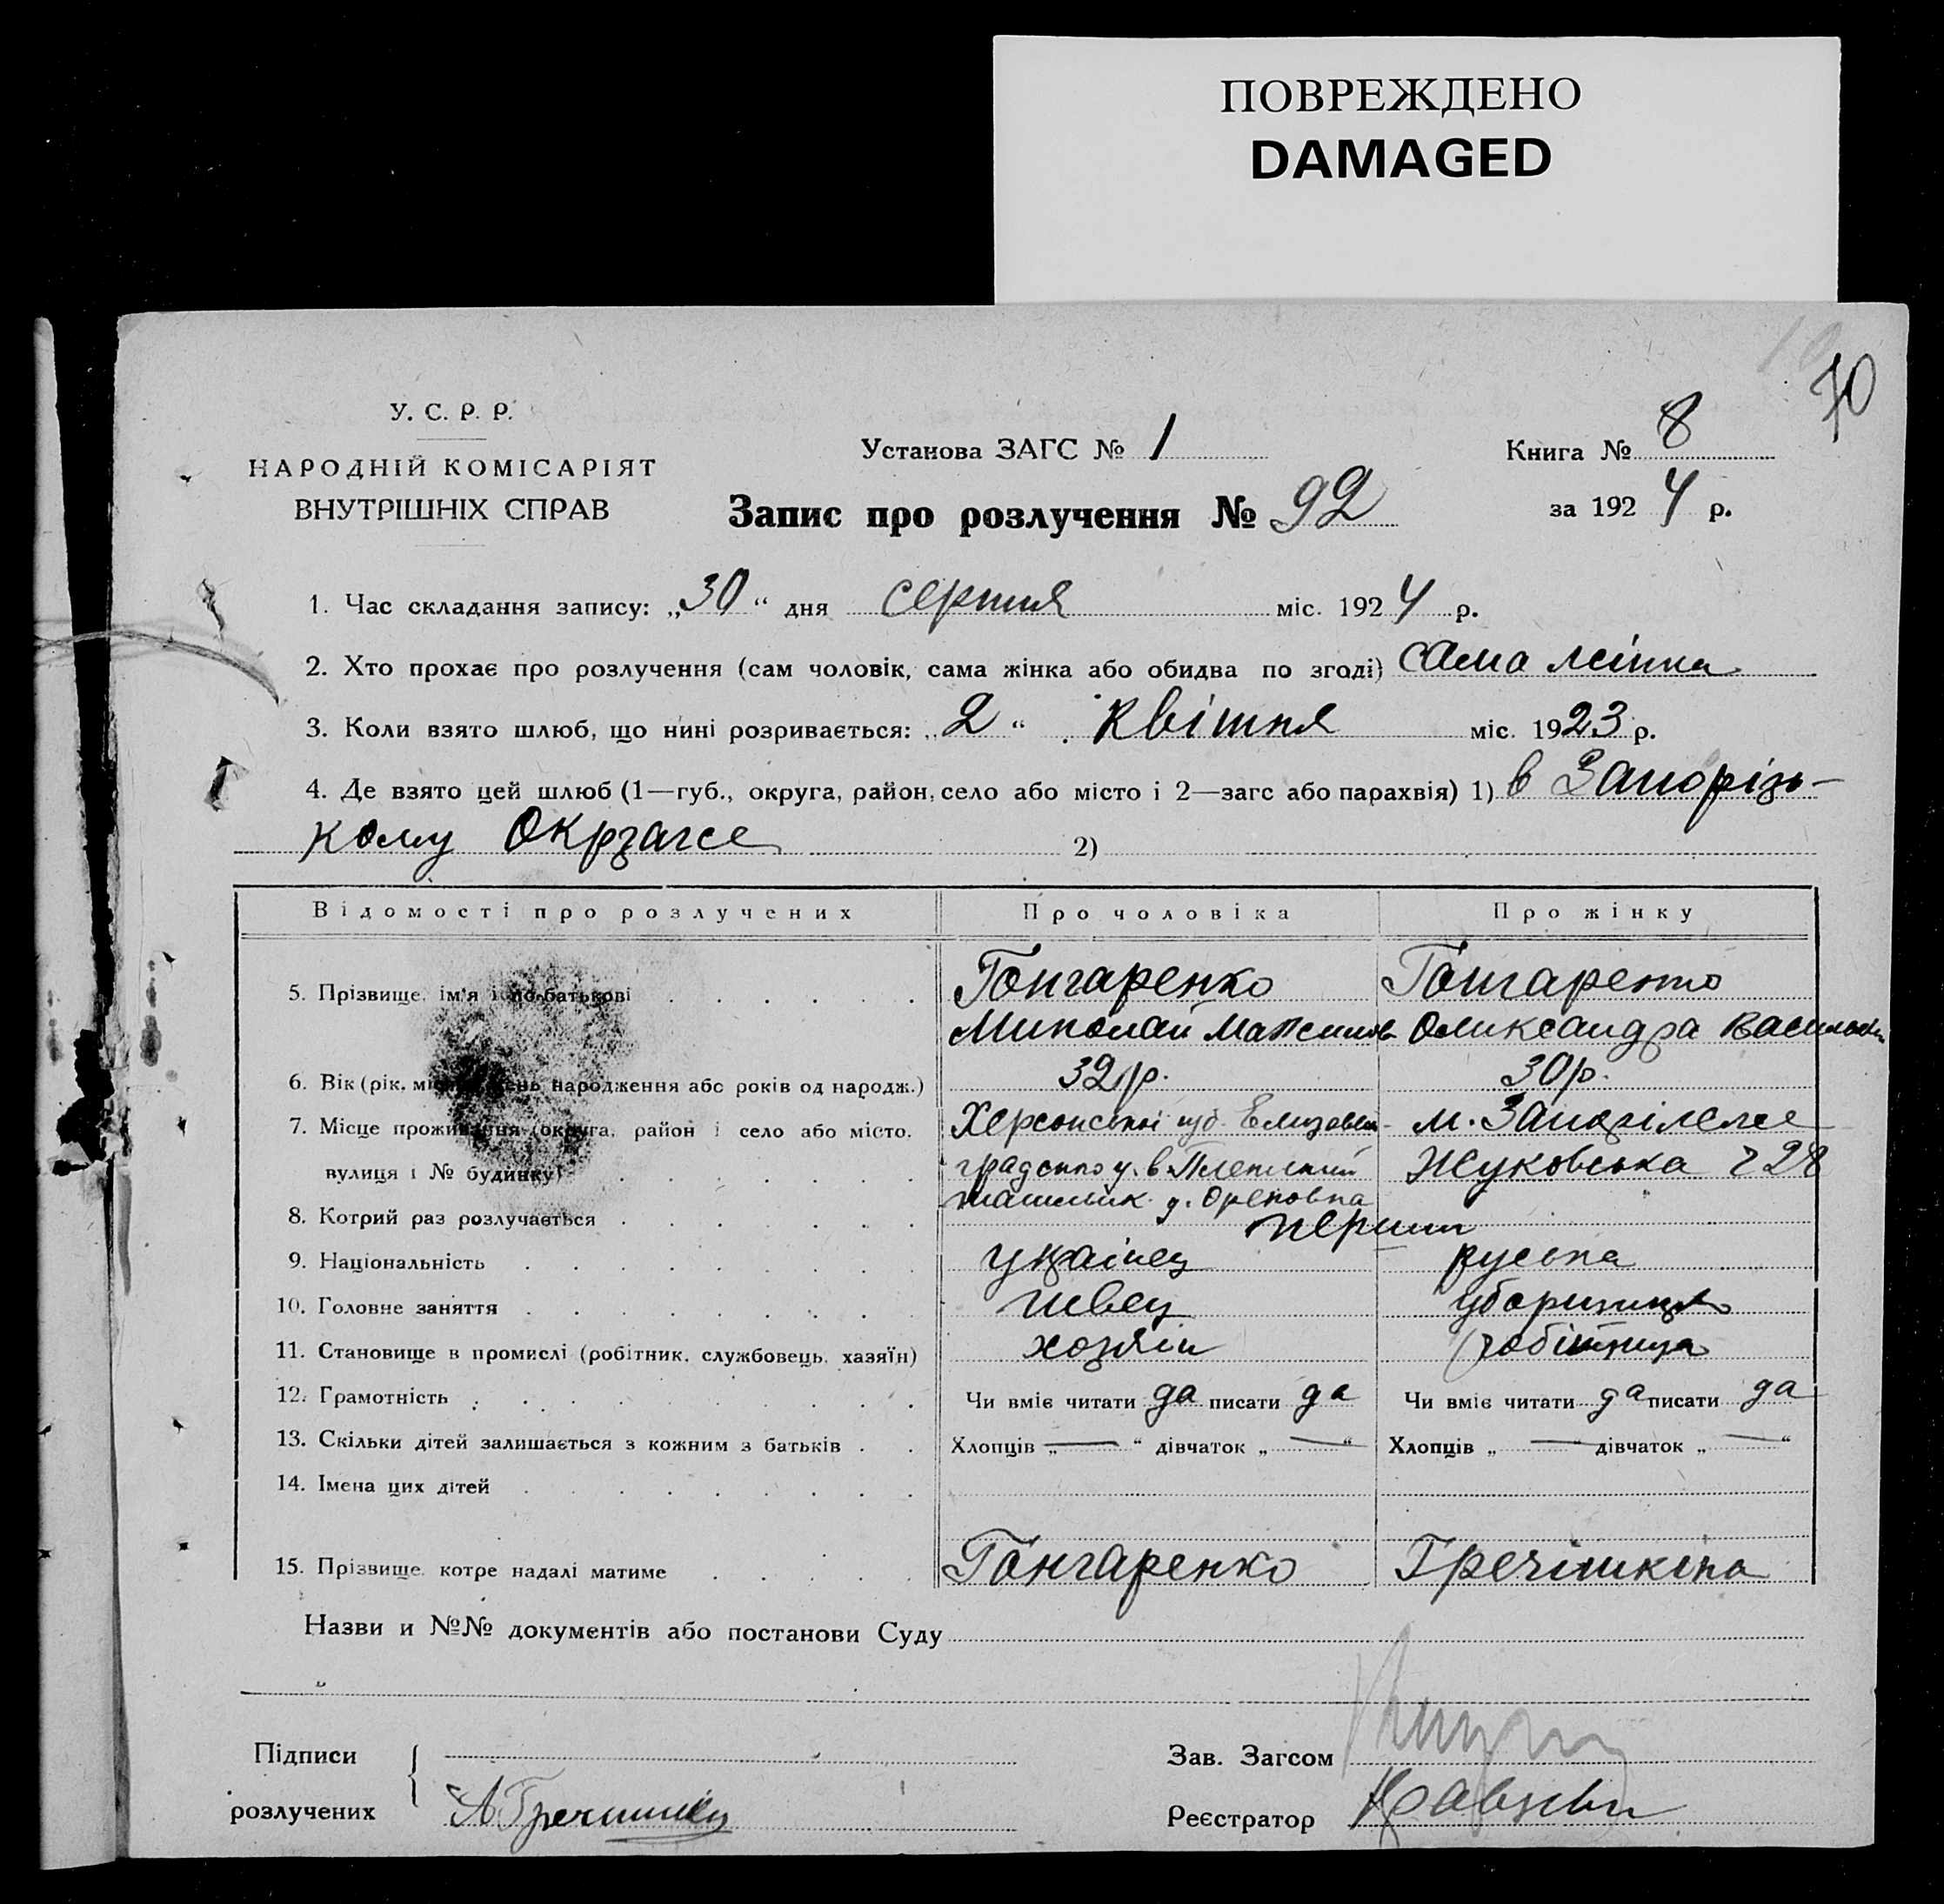 ПОВРЕЖДЕНО
DAMAGED
70
У. С. Р. Р.
НАРОДНІЙ КОМІСАРІЯТ
ВНУТРІШНІХ СПРАВ
Установа ЗАГС № 1
Книга № 8
за 1924 р.
Запис про розлучення № 92
1. Час складання запису: „30“ дня серпня міс. 1924 р.
2. Хто прохає про розлучення (сам чоловік, сама жінка або обидва по згоді) сама жінка
3. Коли взято шлюб, що нині розривається: „2“ квітня міс. 1923 р.
4. Де взято цей шлюб (1—губ., округа, район, село або місто і 2—загс або парахвія) 1) в Запорізь-
кому Окрзагсе 2)
Відомості про розлучених Про чоловіка Про жінку
5. Прізвище, ім'я і по-батькові Гончаренко Гончаренко
Миколай Максимов Олександра Васильевн
6. Вік (рік, місяць, день народження або років од народж.) 32 р. 30 р.
7. Місце проживання (округа, район і село або місто, Херсонської губ. Елизавет- м. Запоріжже
вулиця і № будинку) градсько у. в Жуковська 28
д. Ореповка
8. Котрий раз розлучається перший
9. Національність українец руська
10. Головне заняття швец уборщиця
11. Становище в промислі (робітник, службовець, хазяїн) хозяін робітниця
12. Грамотність Чи вміє читати да писати да Чи вміє читати да писати да
13. Скільки дітей залишається з кожним з батьків Хлопців „—“ дівчаток „—“ Хлопців „—“ дівчаток „—“
14. Імена цих дітей
15. Прізвище, котре надалі матиме Гончаренко Гречишкіна
Назви и №№ документів або постанови Суду
Підписи
розлучених А Гречишкін
Зав. Загсом
Реєстратор